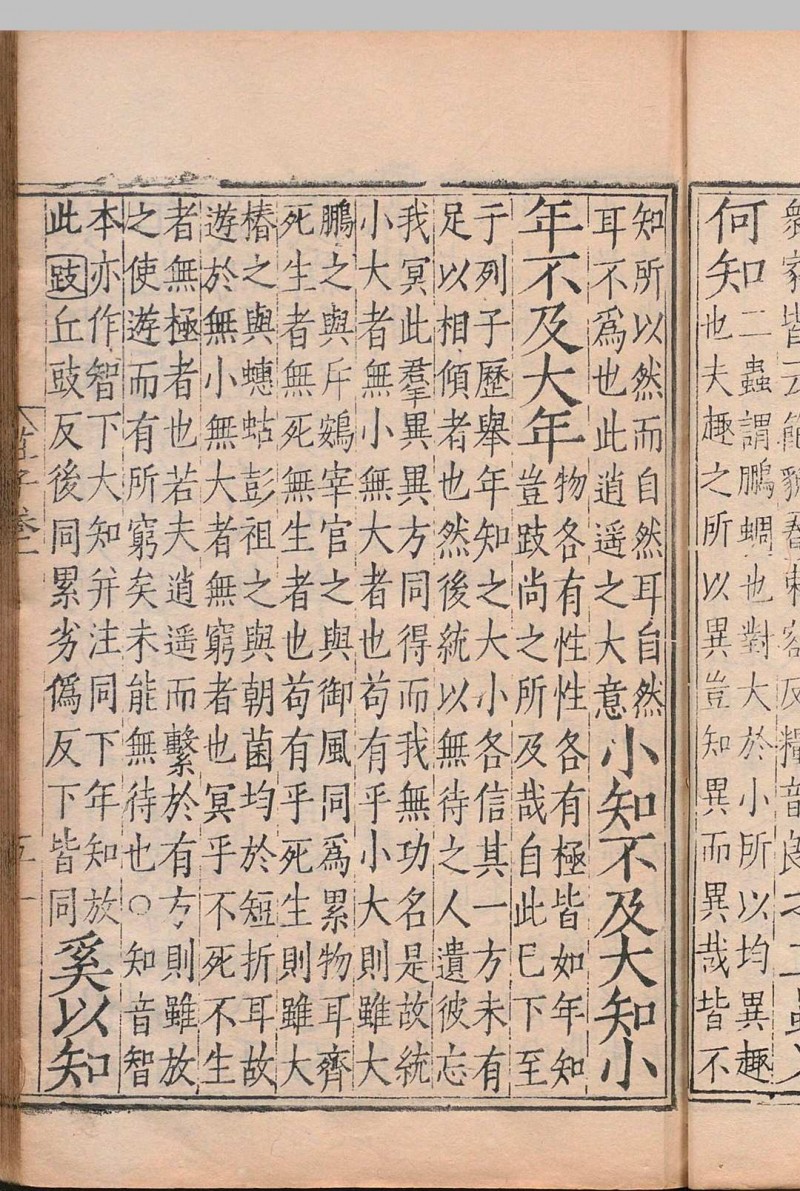 何知
二蟲謂鵬蜩也對大於小所以均異趣
也夫趣之所以異豈知異而異哉皆不
知所以然而自然耳自然
耳不爲也此逍遥之大意
小知不及大知小
年不及大年
物各有性性各有極皆如年知
豈跂尚之所及哉自此巳下至
于列子歷舉年知之大小各信其一方未有
足以相傾者也然後統以無待之人遺彼忘
我冥此羣異異方同得而我無功名是故統
小大者無小無大者也苟有乎小大則雖大
鵬之與斥鷃宰官之與御風同爲累物耳齊
死生者無死無生者也苟有乎死生則雖大
椿之與蟪蛄彭祖之與朝菌均於短折耳故
遊於無小無大者無窮者也冥乎不死不生
者無極者也若夫逍遥而繫於有方則雖放
之使遊而有所窮矣未能無待也○知音智
本亦作智下大知并注同下年知放
此跂丘豉反後同累劣僞反下皆同
奚以知